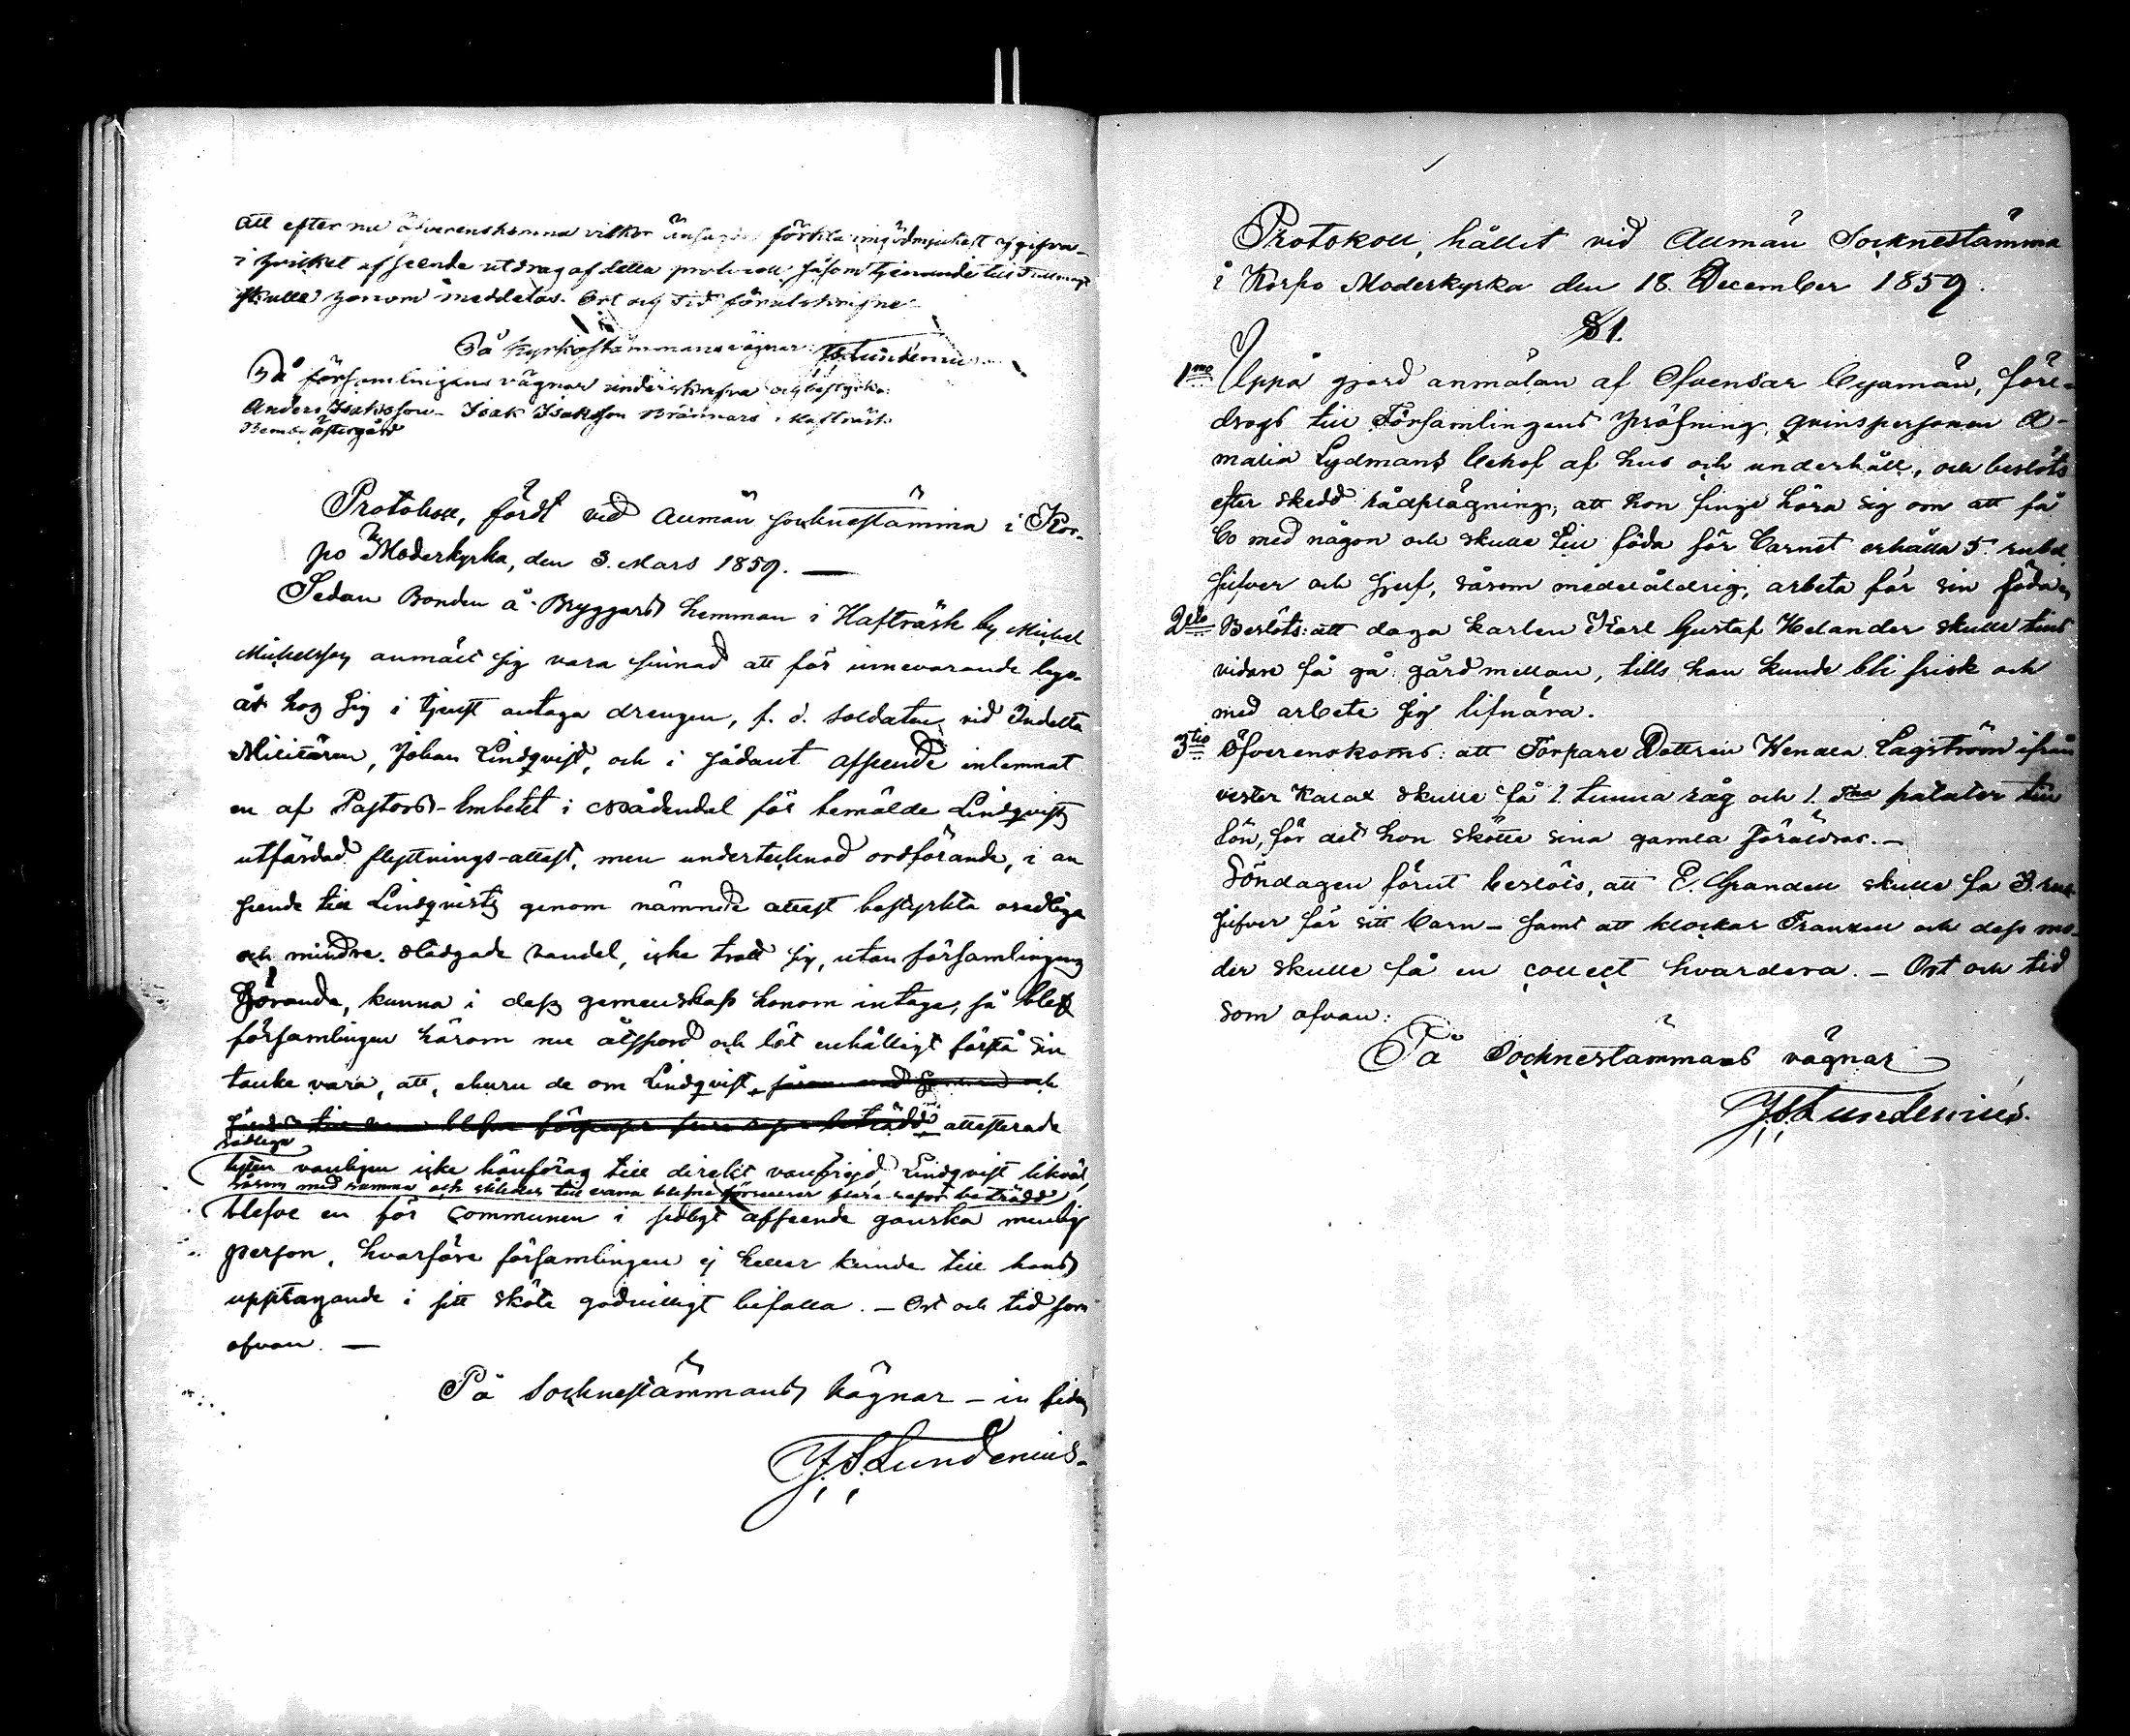 att efter nu öfverenskomna vilkor ödmjukast
i hvilket afseende utdrag af detta protocoll såsom tjenande till
skulle honom meddelas. Ort och tid förutskrifne
På Kyrkostämmans vägnar: J.S. Lundenius
På församlingens vägnar underskrefva och bestyrka:
Anders Isaksson – Isak Isaksson Brännars i Kafträsk
Östergård
Protokoll, fördt vid Allmän Socknestämma i Kor-
po Moderkyrka, den 3. Mars 1859. —
Sedan Bonden å Bryggars hemman i Hafträsk by Michel
Michelsson anmält sig vara sinnad att för innevarande lego-
år hos sig i tjenst antaga drengen, f. d. Soldaten vid Indelta
Militären, Johan Lindqvist, och i sådant afseende inlemnat
en af Pastors-Embetet i Nådendal för bemälde Lindqvist
utfärdad flyttnings-attest, men undertecknad ordförande, i an
seende till Lindqvists genom nämnde attest bestyrkta osedliga
och mindre stadgade vandel, icke trott sig, utan församlingens
hörande, kunna i dess gemenskap honom intaga, så blef
församlingen härom nu åtspord och lät enhälligt förstå sin
tanke vara, att, ehuru de om Lindqvist
blefne beträdd attesterade
sedliga
lyten vanligen icke hänföras till direkt vanfrejd, Lindqvist likväl,
såsom med samma och till vana blefne flera resor beträdd
blefve en för Communen i sedligt afseende ganska menlig
person, hvarföre församlingen ej heller kunde till hans
upptagande i sitt sköte godvilligt bifalla. – Ort och tid som
ofvan. —
På Socknestämmans vägnar – in fidem
J.S. Lundenius.
Protokoll, hållit vid Allmän Socknestämma
i Korpo Moderkyrka den 18. December 1859.
§ 1.
1mo Uppå gjord anmälan af Ofvensar byamän, före-
drogs till Församlingens pröfning, qvinspersonen A-
malia Lydmans behof af hus och underhåll, och beslöts
efter skedd rådplägning, att hon finge höra sig om att få
bo med någon och skulle till föda för barnet erhålla 5. rubel
silfver och sjelf, såsom medelåldrig, arbeta för sin föda
2do Beslöts: att daga karlen Karl Gustaf Helander skulle tills
vidare få gå gård mellan, tills han kunde bli frisk och
med arbete sig lifnära.
3tio Öfverenskoms: att Torpare Dottren Wendla Lagström ifrån
vester Kalax skulle få 1. tunna råg och 1. Tna potäter till
lön, för det hon skötte sina gamla föräldrar. —
Söndagen förut beslöts, att E. Grandell skulle få 3. rub.
silfver för sitt barn – samt att klockar Franzen och dess mo-
der skulle få en collect hvardera. – Ort och tid
som ofvan:
På Socknestämmans vägnar
J.S. Lundenius.